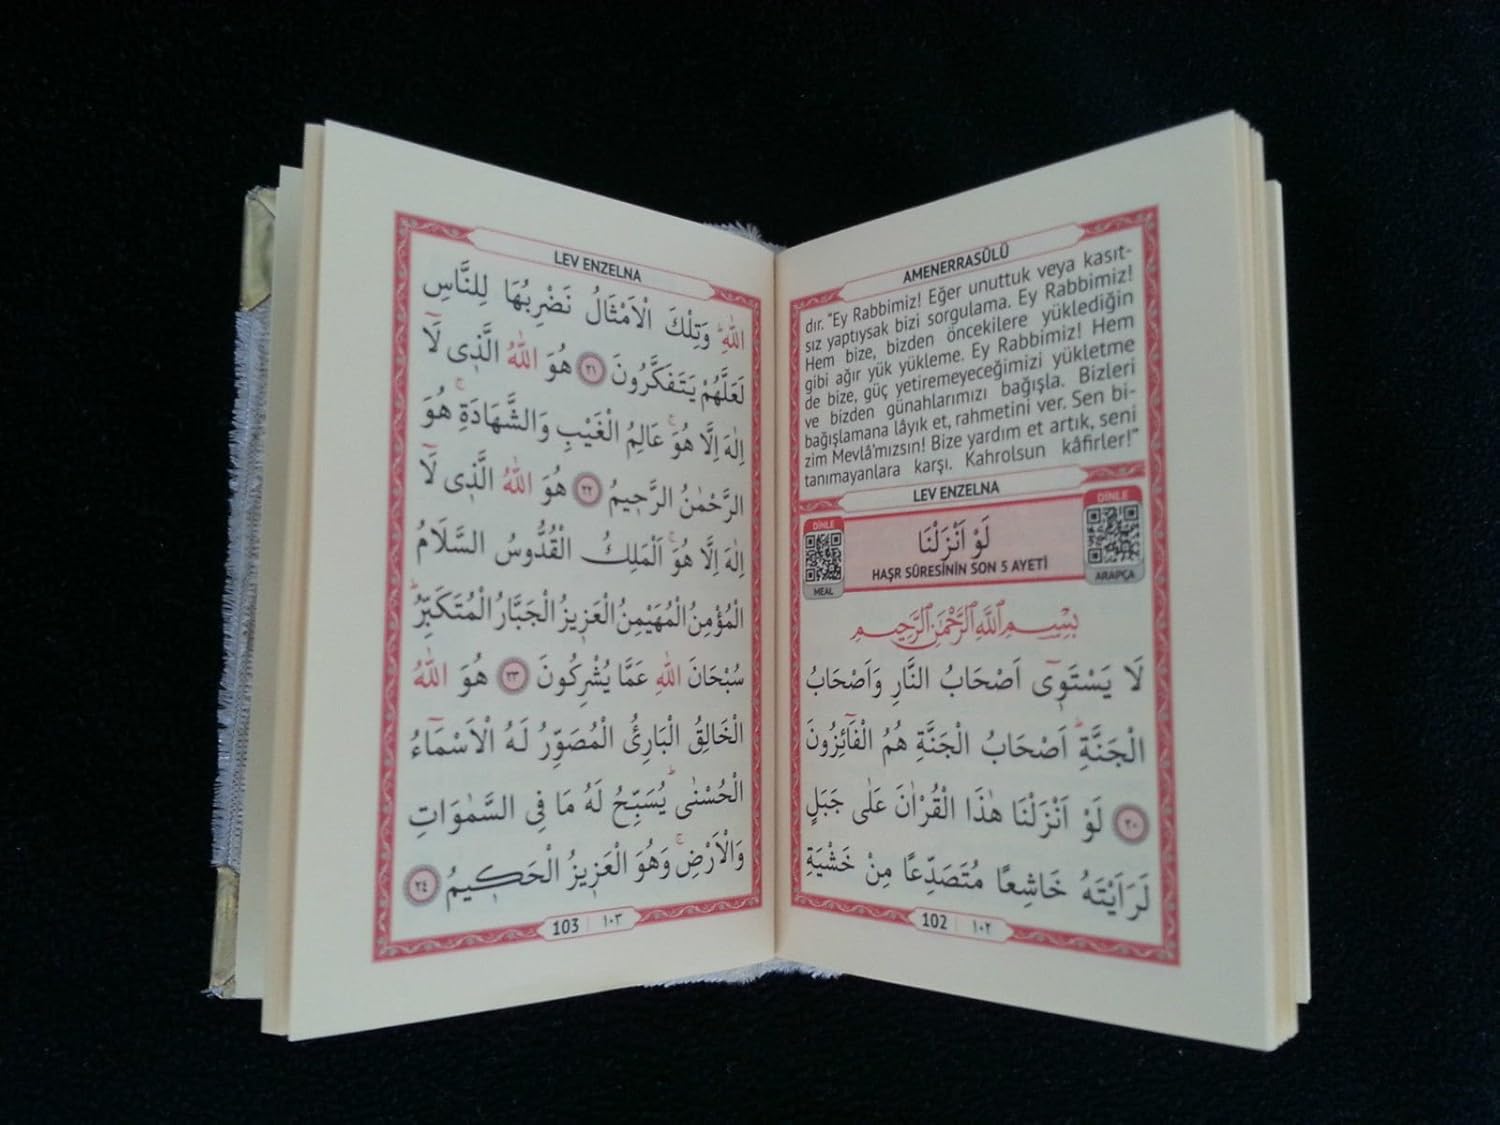 AMENERRASÛLÜ
dır. "Ey Rabbimiz! Eğer unuttuk veya kasıt-
sız yaptıysak bizi sorgulama. Ey Rabbimiz!
Hem bize, bizden öncekilere yüklediğin
gibi ağır yük yükleme. Ey Rabbimiz! Hem
de bize, güç yetiremeyeceğimizi yükletme
ve bizden günahlarımızı bağışla. Bizleri
bağışlamana lâyık et, rahmetini ver. Sen bi-
zim Mevlâ'mızsın! Bize yardım et artık, seni
tanımayanlara karşı. Kahrolsun kâfirler!"
LEV ENZELNA
DİNLE
MEAL
لَوْ اَنْزَلْنَا
HAŞR SÛRESİNİN SON 5 AYETİ
DİNLE
ARAPÇA
بِسْمِ اللّٰهِ الرَّحْمٰنِ الرَّحِيمِ
لَا يَسْتَوِٓى اَصْحَابُ النَّارِ وَاَصْحَابُ
الْجَنَّةِۜ اَصْحَابُ الْجَنَّةِ هُمُ الْفَٓائِزُونَ
﴿٢٠﴾ لَوْ اَنْزَلْنَا هٰذَا الْقُرْاٰنَ عَلٰى جَبَلٍ
لَرَاَيْتَهُ خَاشِعًا مُتَصَدِّعًا مِنْ خَشْيَةِ
102 ١٠٢
LEV ENZELNA
اللّٰهِۜ وَتِلْكَ الْاَمْثَالُ نَضْرِبُهَا لِلنَّاسِ
لَعَلَّهُمْ يَتَفَكَّرُونَ ﴿٢١﴾ هُوَ اللّٰهُ الَّذِى لَٓا
اِلٰهَ اِلَّا هُوَۚ عَالِمُ الْغَيْبِ وَالشَّهَادَةِۚ هُوَ
الرَّحْمٰنُ الرَّحِيمُ ﴿٢٢﴾ هُوَ اللّٰهُ الَّذِى لَٓا
اِلٰهَ اِلَّا هُوَۚ اَلْمَلِكُ الْقُدُّوسُ السَّلَامُ
الْمُؤْمِنُ الْمُهَيْمِنُ الْعَزِيزُ الْجَبَّارُ الْمُتَكَبِّرُۜ
سُبْحَانَ اللّٰهِ عَمَّا يُشْرِكُونَ ﴿٢٣﴾ هُوَ اللّٰهُ
الْخَالِقُ الْبَارِئُ الْمُصَوِّرُ لَهُ الْاَسْمَٓاءُ
الْحُسْنٰىۜ يُسَبِّحُ لَهُ مَا فِى السَّمٰوَاتِ
وَالْاَرْضِۚ وَهُوَ الْعَزِيزُ الْحَكِيمُ ﴿٢٤﴾
103 ١٠٣